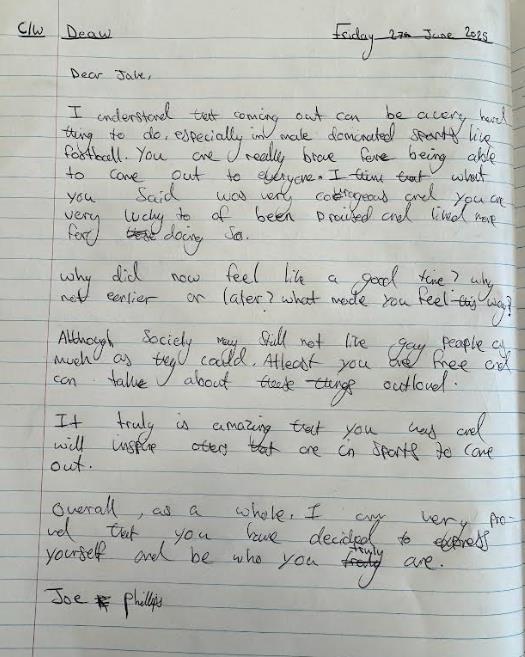 C/W Deaw Friday 27th June 2025
Dear Jake,
I understand that coming out can be a very hard
thing to do, especially in male dominated sports like
football. You are really brave fore being able
to come out to everyone. I think that what
you said was very courageous and you are
very lucky to of been praised and liked more
for doing so.
why did now feel like a good time? why
not earlier or later? what made you feel this way?
Although Society may still not like gay people as
much as they could. Atleast you are free and
can talk about these things outloud.
It truly is amazing that you has and
will inspire others that are in sports to come
out.
Overall, as a whole. I am very pro-
ud that you have decided to express
yourself and be who you truly are.
Joe Phillips